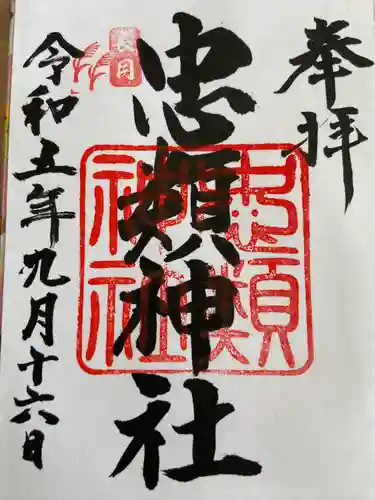 奉拝
忠類神社
長月
令和五年九月十六日